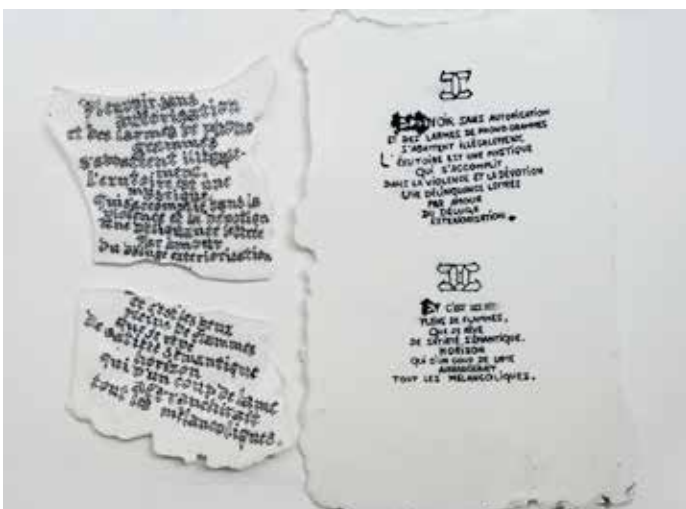 autorisation
et des larmes de phono
grammes
s'abattent illégale-
ment.
L'exutoire est une
mystique
violence et la dévotion
Par amour
Du déluge exteriorisation
et c'est les yeux
pleins de flammes
que je rêve
De satiété sémantique
horizon
qui d'un coup de lame
affranchirait
tous les mélancoliques.
II
NOIR SANS AUTORISATION
ET DES LARMES DE PHONO-GRAMMES
S'ABATTENT ILLÉGALEMENT.
L'EXUTOIRE EST UNE MYSTIQUE
QUI S'ACCOMPLIT
DANS LA VIOLENCE ET LA DÉVOTION
UNE DÉLINQUANCE LETTRÉE
PAR AMOUR
DU DÉLUGE
EXTERIORISATION.
III
ET C'EST LES
PLEINS DE FLAMMES,
QUE JE RÊVE
DE SATIÉTÉ SÉMANTIQUE.
HORIZON
QUI D'UN COUP DE LAME
TOUT LES MÉLANCOLIQUES.